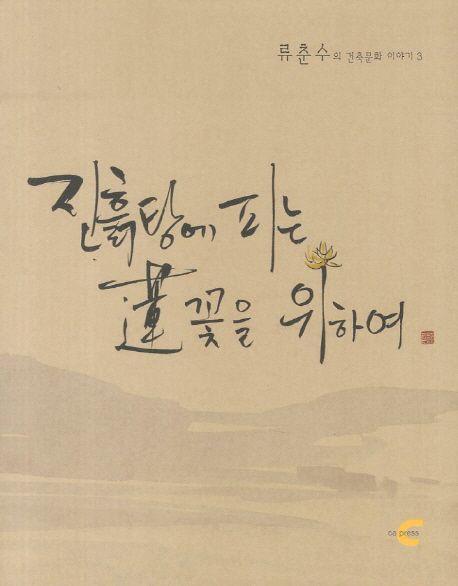 류춘수의 건축문화 이야기 3
진흙탕에 피는
蓮꽃을 위하여
ca press